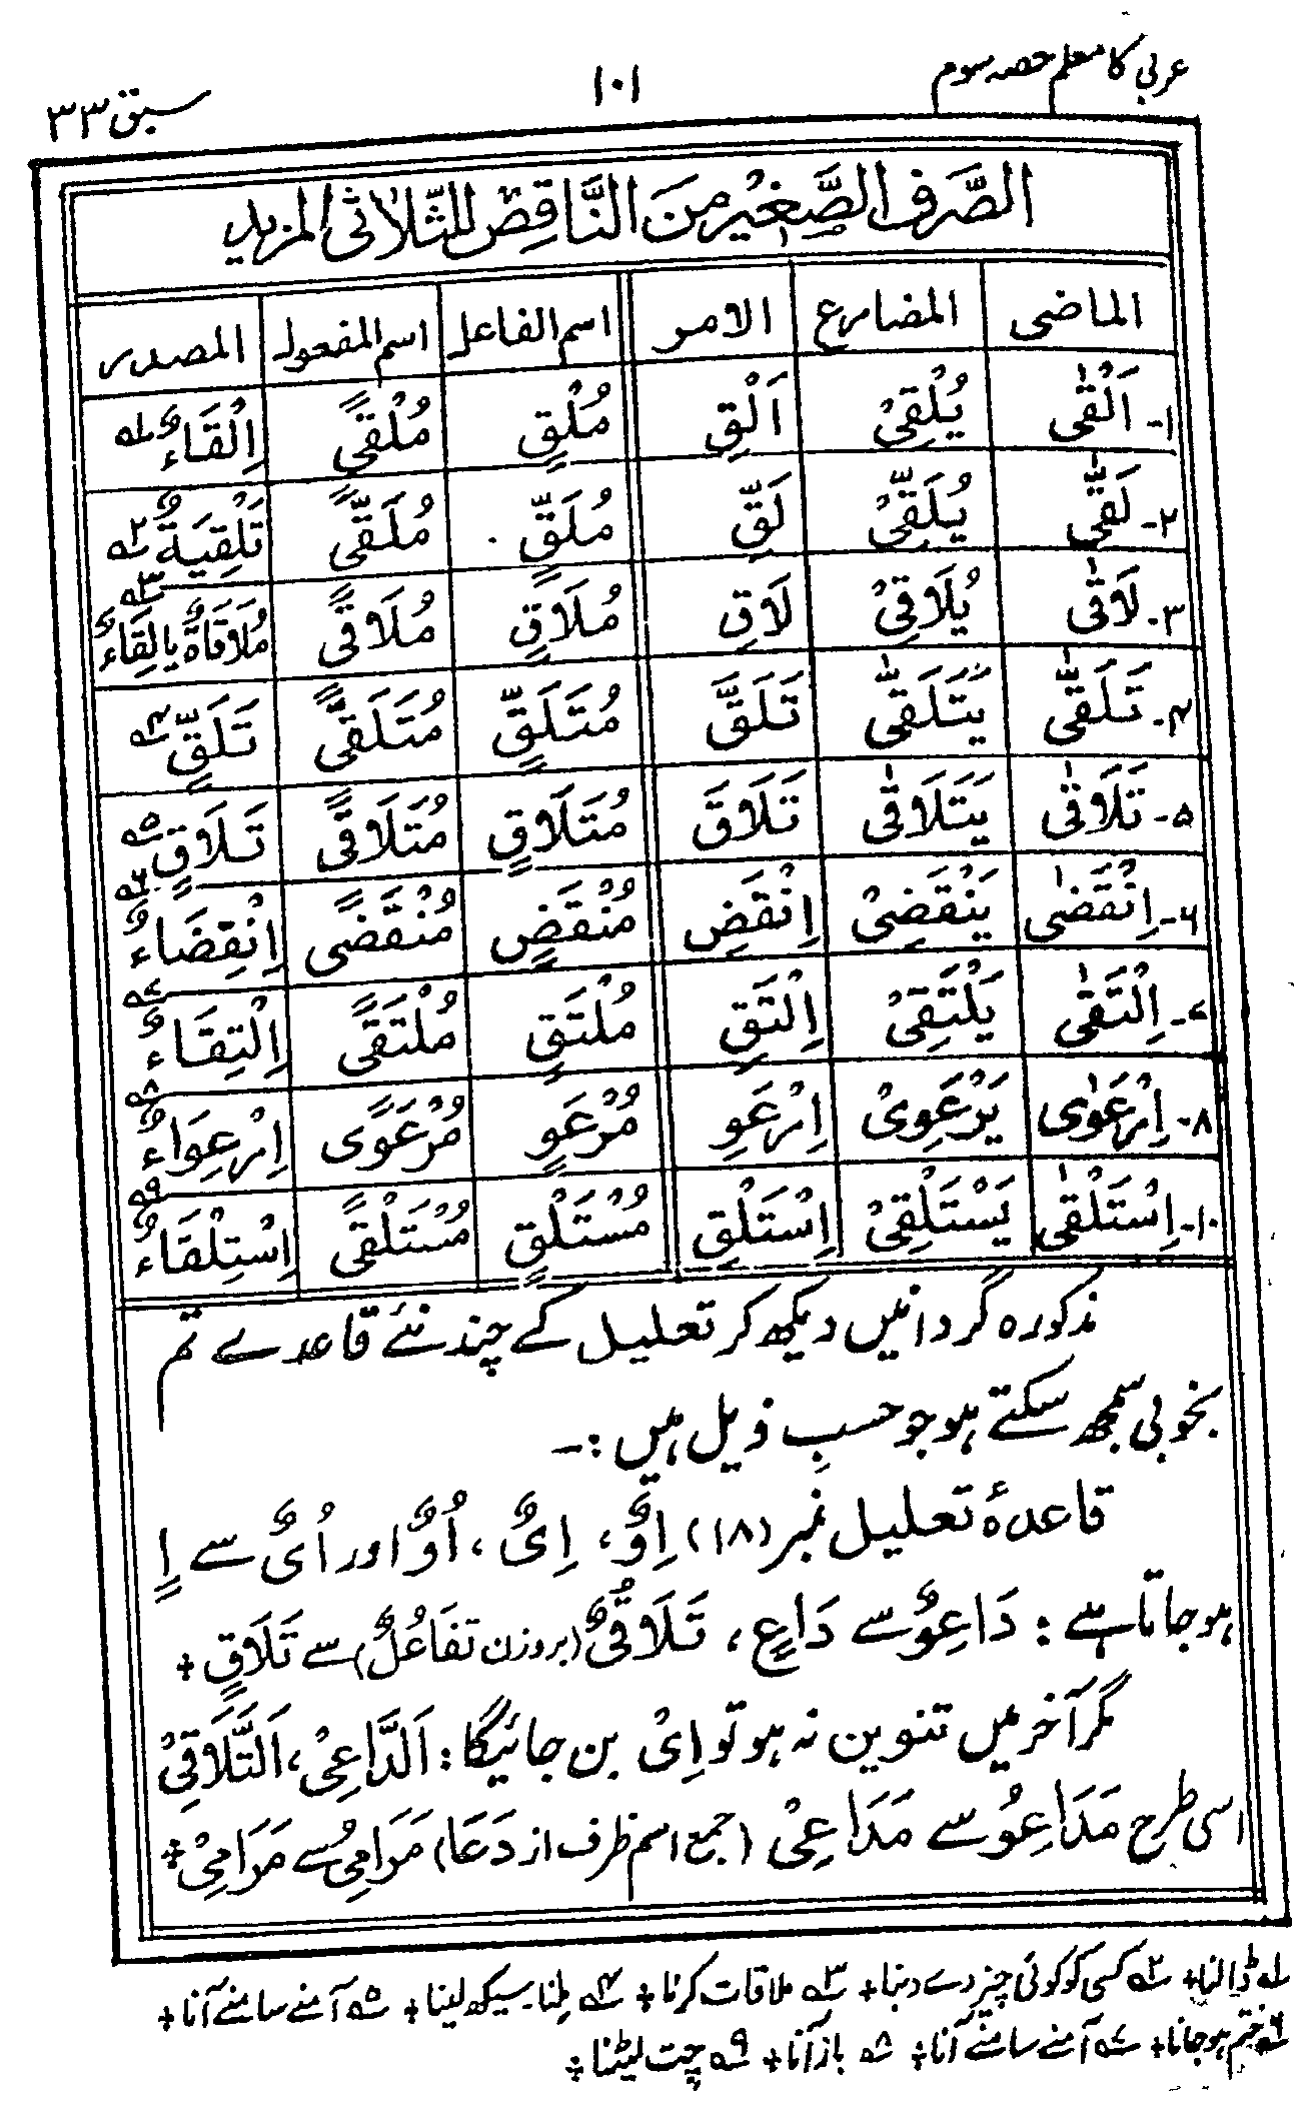 عربی کا معلم حصہ سوم ۱۰۱ سبق ۳۳
الصَّرف الصَّغیْر مِنَ النَّاقِصِ للثّلاثی المزید
الماضی المضارع الامر اسم الفاعل اسم المفعول المصدر
۱- اَلْقٰی یُلْقِیْ اَلْقِ مُلْقٍ مُلْقًی اِلْقَاءٌ ؎۱
۲- لَقّٰی یُلَقِّیْ لَقِّ مُلَقٍّ مُلَقًّی تَلْقِیَةٌ ؎۲
۳- لَاقٰی یُلَاقِیْ لَاقِ مُلَاقٍ مُلَاقًی مُلَاقَاةٌ یا لِقَاءٌ ؎۳
۴- تَلَقّٰی یَتَلَقّٰی تَلَقَّ مُتَلَقٍّ مُتَلَقًّی تَلَقٍّ ؎۴
۵- تَلَاقٰی یَتَلَاقٰی تَلَاقَ مُتَلَاقٍ مُتَلَاقًی تَلَاقٍ ؎۵
۶- اِنْقَضٰی یَنْقَضِیْ اِنْقَضِ مُنْقَضٍ مُنْقَضًی اِنْقِضَاءٌ ؎۶
۷- اِلْتَقٰی یَلْتَقِیْ اِلْتَقِ مُلْتَقٍ مُلْتَقًی اِلْتِقَاءٌ ؎۷
۸- اِرْعَوٰی یَرْعَوِیْ اِرْعَوِ مُرْعَوٍ مُرْعَوًی اِرْعِوَاءٌ ؎۸
۱۰- اِسْتَلْقٰی یَسْتَلْقِیْ اِسْتَلْقِ مُسْتَلْقٍ مُسْتَلْقًی اِسْتِلْقَاءٌ ؎۹
مذکورہ گردانیں دیکھ کر تعلیل کے چند نئے قاعدے تم
بخوبی سمجھ سکتے ہو جو حسبِ ذیل ہیں :-
قاعدۂ تعلیل نمبر (۱۸) اِوٌ، اِیٌ، اُوٌ اور اُیٌ سے اٍ
ہو جاتا ہے : دَاعِوٌ سے دَاعٍ، تَلَاقُیٌ (بروزن تَفَاعُلٌ) سے تَلَاقٍ ÷
مگر آخر میں تنوین نہ ہو تو اِیْ بن جائیگا : اَلدَّاعِیْ، اَلتَّلَاقِیْ
اسی طرح مَدَاعِوُ سے مَدَاعِیْ (جمع اسم ظرف از دَعَا) مَرَامِیُ سے مَرَامِیْ ÷
؎۱ ڈالنا ÷ ؎۲ کسی کو کوئی چیز دے دینا ÷ ؎۳ ملاقات کرنا ÷ ؎۴ ملنا۔ سیکھ لینا ÷ ؎۵ آمنے سامنے آنا ÷
؎۶ ختم ہو جانا ÷ ؎۷ آمنے سامنے آنا ÷ ؎۸ باز آنا ÷ ؎۹ چت لیٹنا ÷